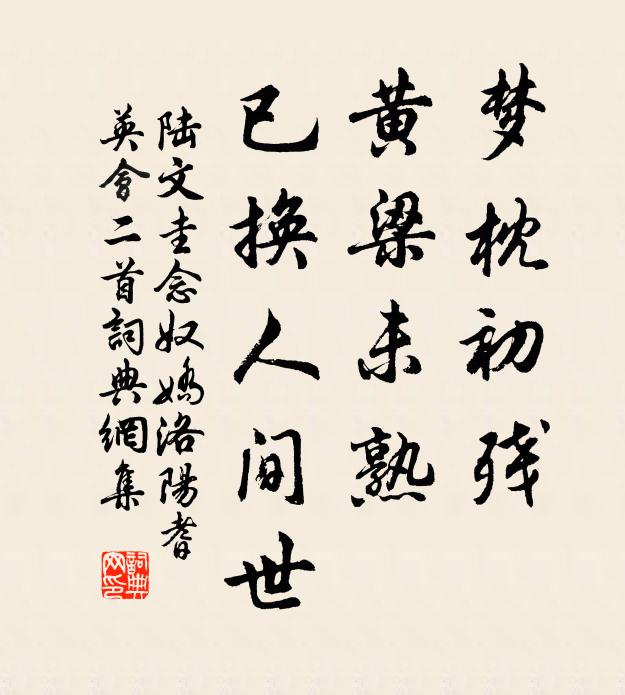 梦枕初残
黄梁未熟
已换人间世
陆文圭念奴嬌洛陽耆
英會二首詞典網集
詞典
网印